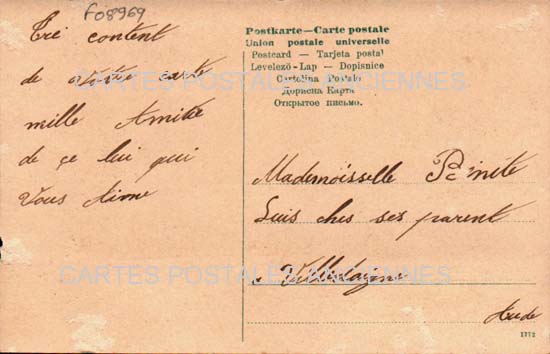 F08969
Tré content
de votre carte
mille Amitié
de çe lui qui
Vous Aime
Postkarte—Carte postale
Union postale universelle
Postcard — Tarjeta postal
Levelező-Lap — Dopisnice
Cartolina Postale
Дописна Карта
Открытое письмо.
Mademoisselle
Luis ches ses parent
a
Aude
1772
CARTES POSTALES ANCIENNES
CARTES POSTALES ANCIENNES